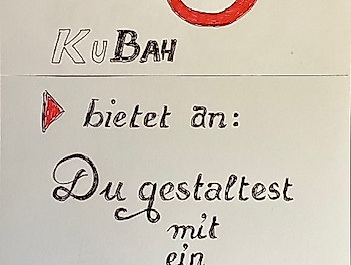 KuBAH
bietet an:
Du gestaltest
mit
ein